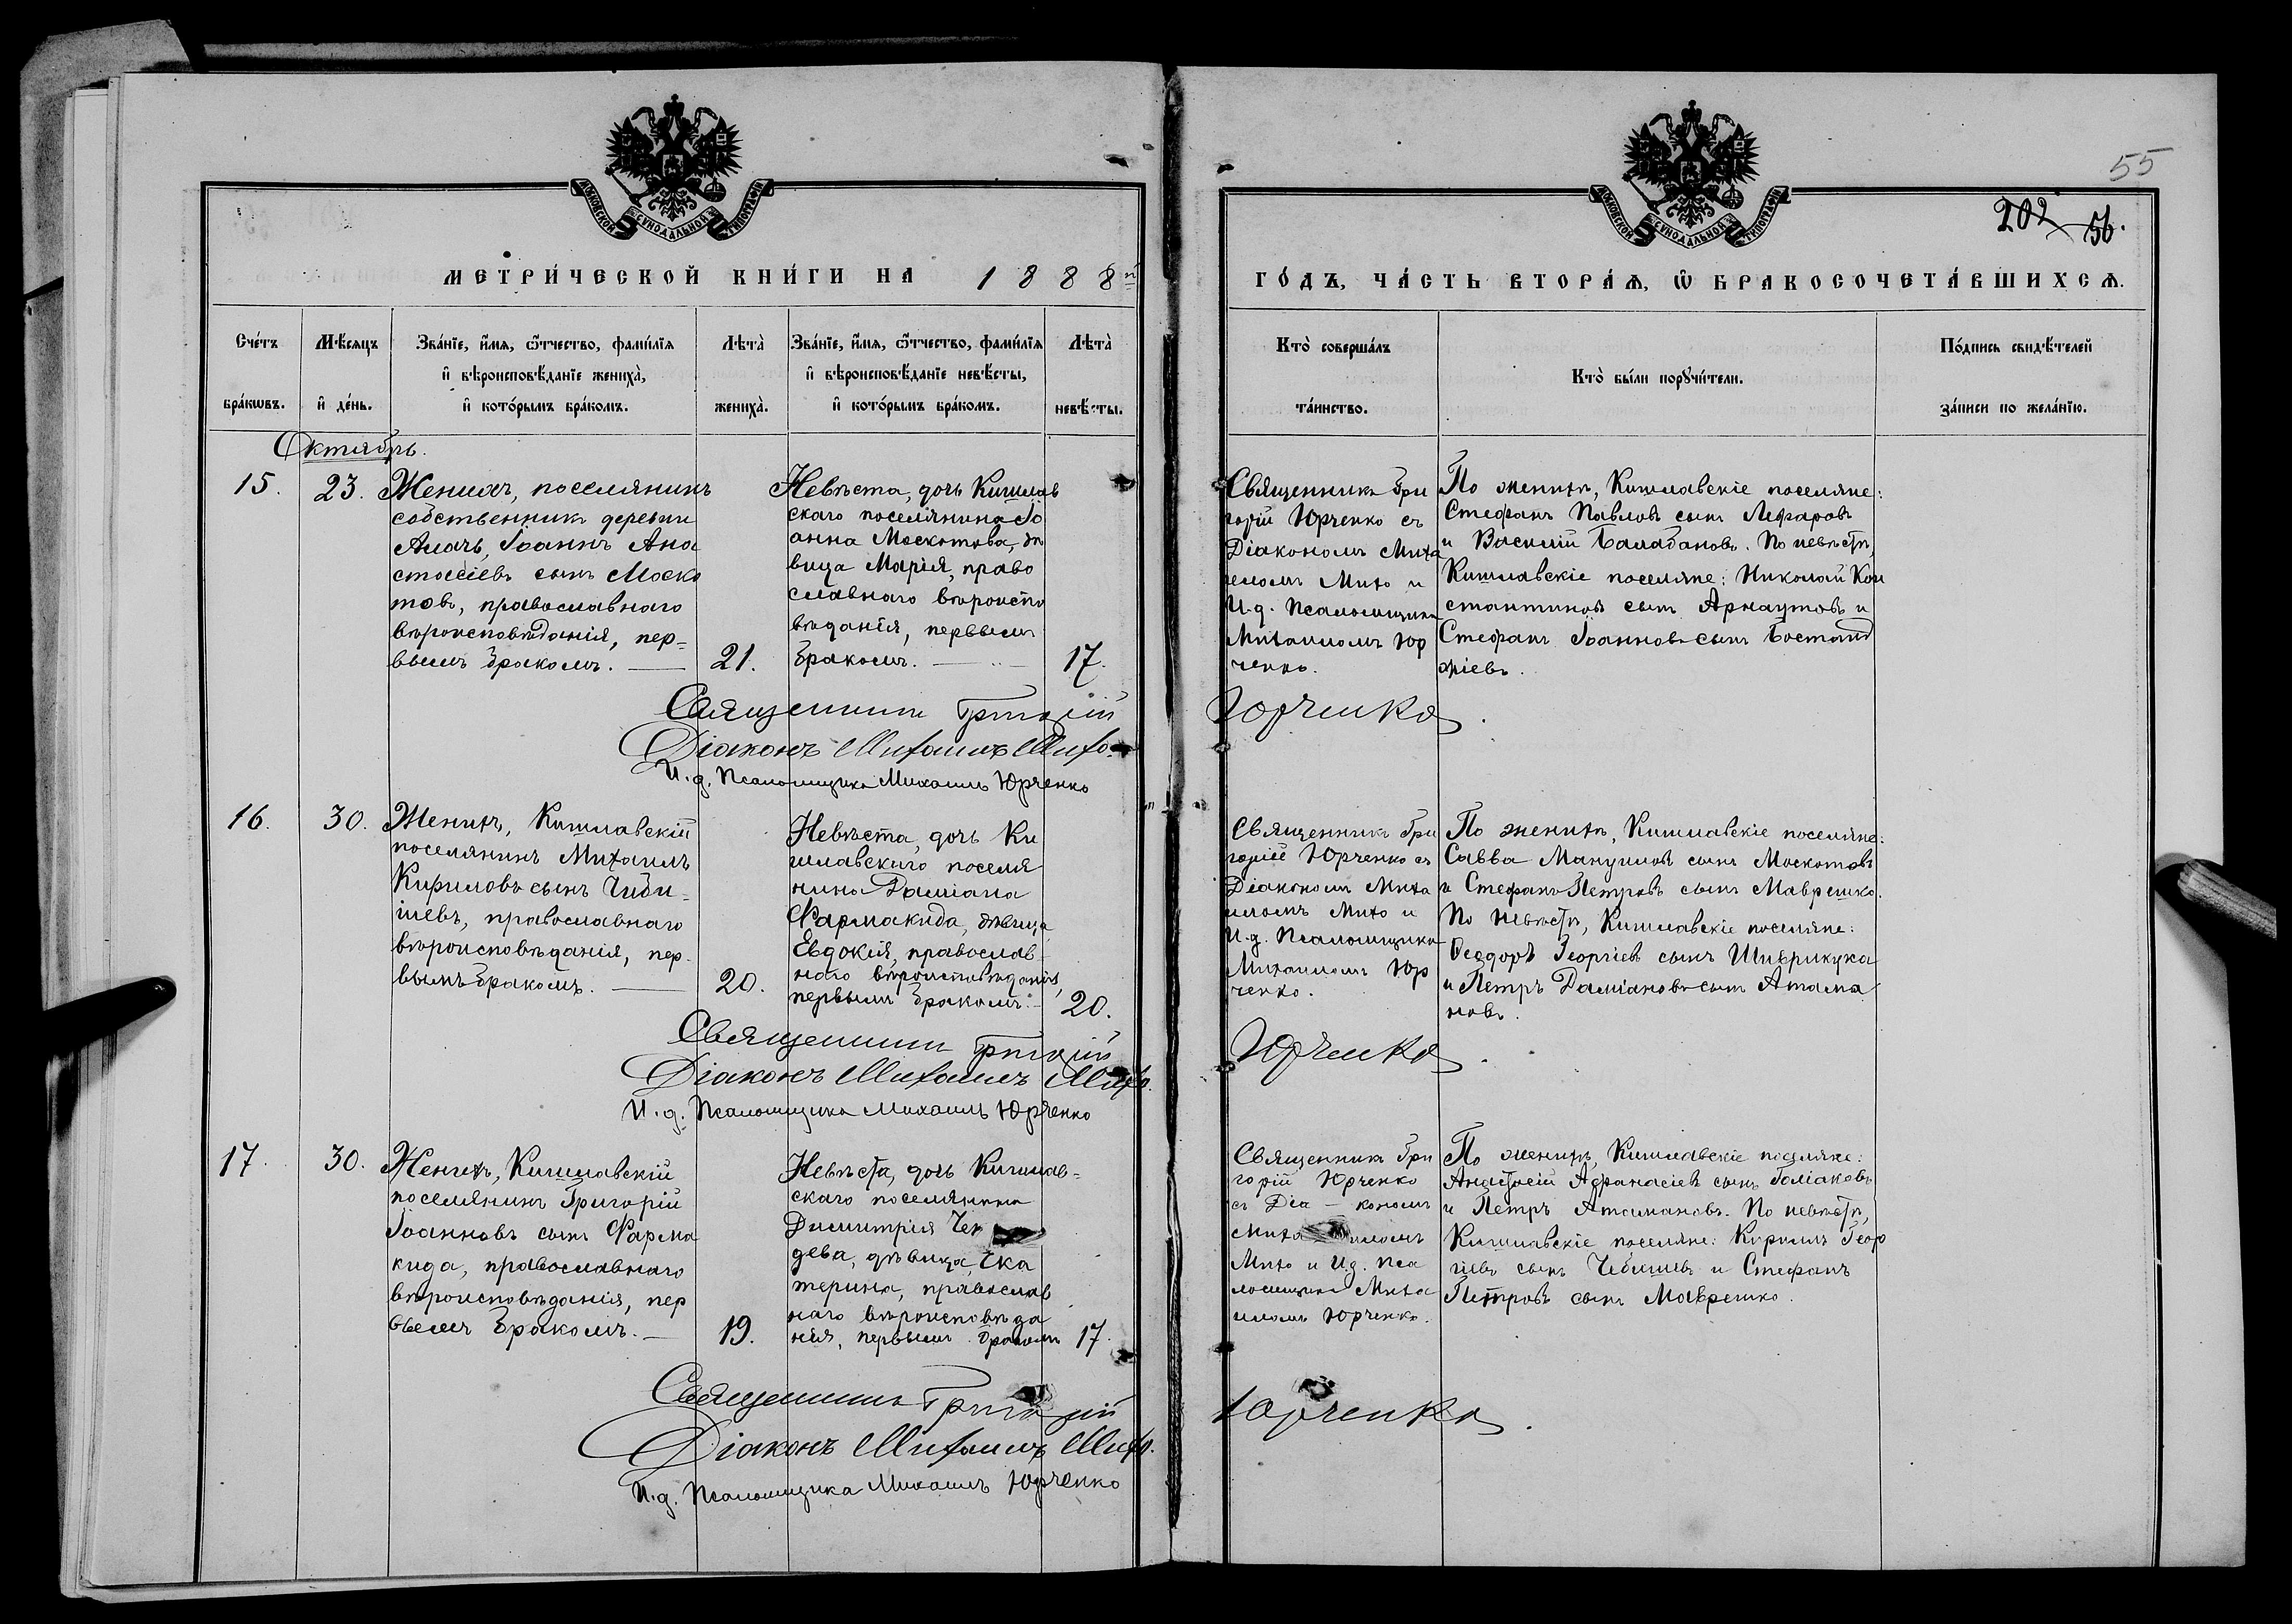 55
202 56.
МОСКОВСКОЙ СУНОДАЛЬНОЙ ТИПОГРАФІИ
МОСКОВСКОЙ СУНОДАЛЬНОЙ ТИПОГРАФІИ
МЕТРИ́ЧЕСКОЙ КНИ́ГИ НА 1888й
ГО́ДЪ, ЧА́СТЬ ВТОРА́Ѧ, Ѡ҆ БРАКОСОЧЕТА́ВШИХСѦ.
Сче́тъ бра́кѡвъ.
Мѣ́сѧцъ и҆ де́нь.
Зва́нїе, и҆́мѧ, ѻ҆́тчество, фами́лїѧ
и҆ вѣроисповѣ́данїе жениха̀,
и҆ кото́рымъ бра́комъ.
Лѣта̀ жениха̀.
Зва́нїе, и҆́мѧ, ѻ҆́тчество, фами́лїѧ
и҆ вѣроисповѣ́данїе невѣ́сты,
и҆ кото́рымъ бра́комъ.
Лѣта̀ невѣ́сты.
Кто̀ соверша́лъ
та́инство.
Кто̀ бы́ли порꙋчи́тели.
По́дпись свидѣ́телей
за́писи по жела́нїю.
Октябрь.
15.
23.
Женихъ, поселянинъ
собственникъ деревни
Алачь, Іоаннъ Ана
стасіевъ сынъ Моско
товъ, православнаго
вѣроисповѣданія, пер-
вымъ бракомъ.
21.
Невѣста, дочь Кишлав
скаго поселянина Іо
анна Москотова, дѣ
вица Марія, право
славнаго вѣроиспо
вѣданія, первымъ
бракомъ.
17.
Священникъ Гри
горій Юрченко съ
Діакономъ Миха
иломъ Михо и
И.д. Псаломщика
Михаиломъ Юр
ченко.
По женихѣ, Кишлавскіе поселяне:
Стефанъ Павловъ сынъ Лефаровъ
и Василій Балабановъ. По невѣстѣ,
Кишлавскіе поселяне: Николай Кон
стантиновъ сынъ Арнаутовъ и
Стефанъ Іоанновъ сынъ Бостанд
жіевъ.
Священникъ Григорій Юрченко.
Діаконъ Михаилъ Михо.
И.д. Псаломщика Михаилъ Юрченко
16.
30.
Женихъ, Кишлавскій
поселянинъ Михаилъ
Кириловъ сынъ Чиби-
шевъ, православнаго
вѣроисповѣданія, пер-
вымъ бракомъ.
20.
Невѣста, дочь Ки
шлавскаго поселя
нина Даміана
Фармакида, дѣвица
Евдокія, православ-
наго вѣроисповѣданія,
первымъ бракомъ.
20.
Священникъ Гри
горій Юрченко съ
Діакономъ Миха
иломъ Михо и
И.д. Псаломщика
Михаиломъ Юр
ченко.
По женихѣ, Кишлавскіе поселяне:
Савва Мануиловъ сынъ Москотовъ
и Стефанъ Петровъ сынъ Маврешко.
По невѣстѣ, Кишлавскіе поселяне:
Ѳеодоръ Георгіевъ сынъ Шиврикука
и Петръ Даміановъ сынъ Атама
новъ.
Священникъ Григорій Юрченко.
Діаконъ Михаилъ Михо.
И.д. Псаломщика Михаилъ Юрченко
17.
30.
Женихъ, Кишлавскій
поселянинъ Григорій
Іоанновъ сынъ Фарма
кида, православнаго
вѣроисповѣданія, пер
вымъ бракомъ.
19.
Невѣста, дочь Кишлав-
скаго поселянина
Димитрія
дева, дѣвица, Ека
терина, православ
наго вѣроисповѣда
нія, первымъ бракомъ
17.
Священникъ Гри
горій Юрченко
съ Діа-кономъ
Миха иломъ
Михо и И.д. Пса
ломщика Миха
иломъ Юрченко.
По женихѣ, Кишлавскіе поселяне:
Анастасій Афанасіевъ сынъ Галіаковъ
и Петръ Атамановъ. По невѣстѣ,
Кишлавскіе поселяне: Кириллъ Геор
гіевъ сынъ Чебишевъ и Стефанъ
Петровъ сынъ Маврешко.
Священникъ Григорій Юрченко.
Діаконъ Михаилъ Михо.
И.д. Псаломщика Михаилъ Юрченко